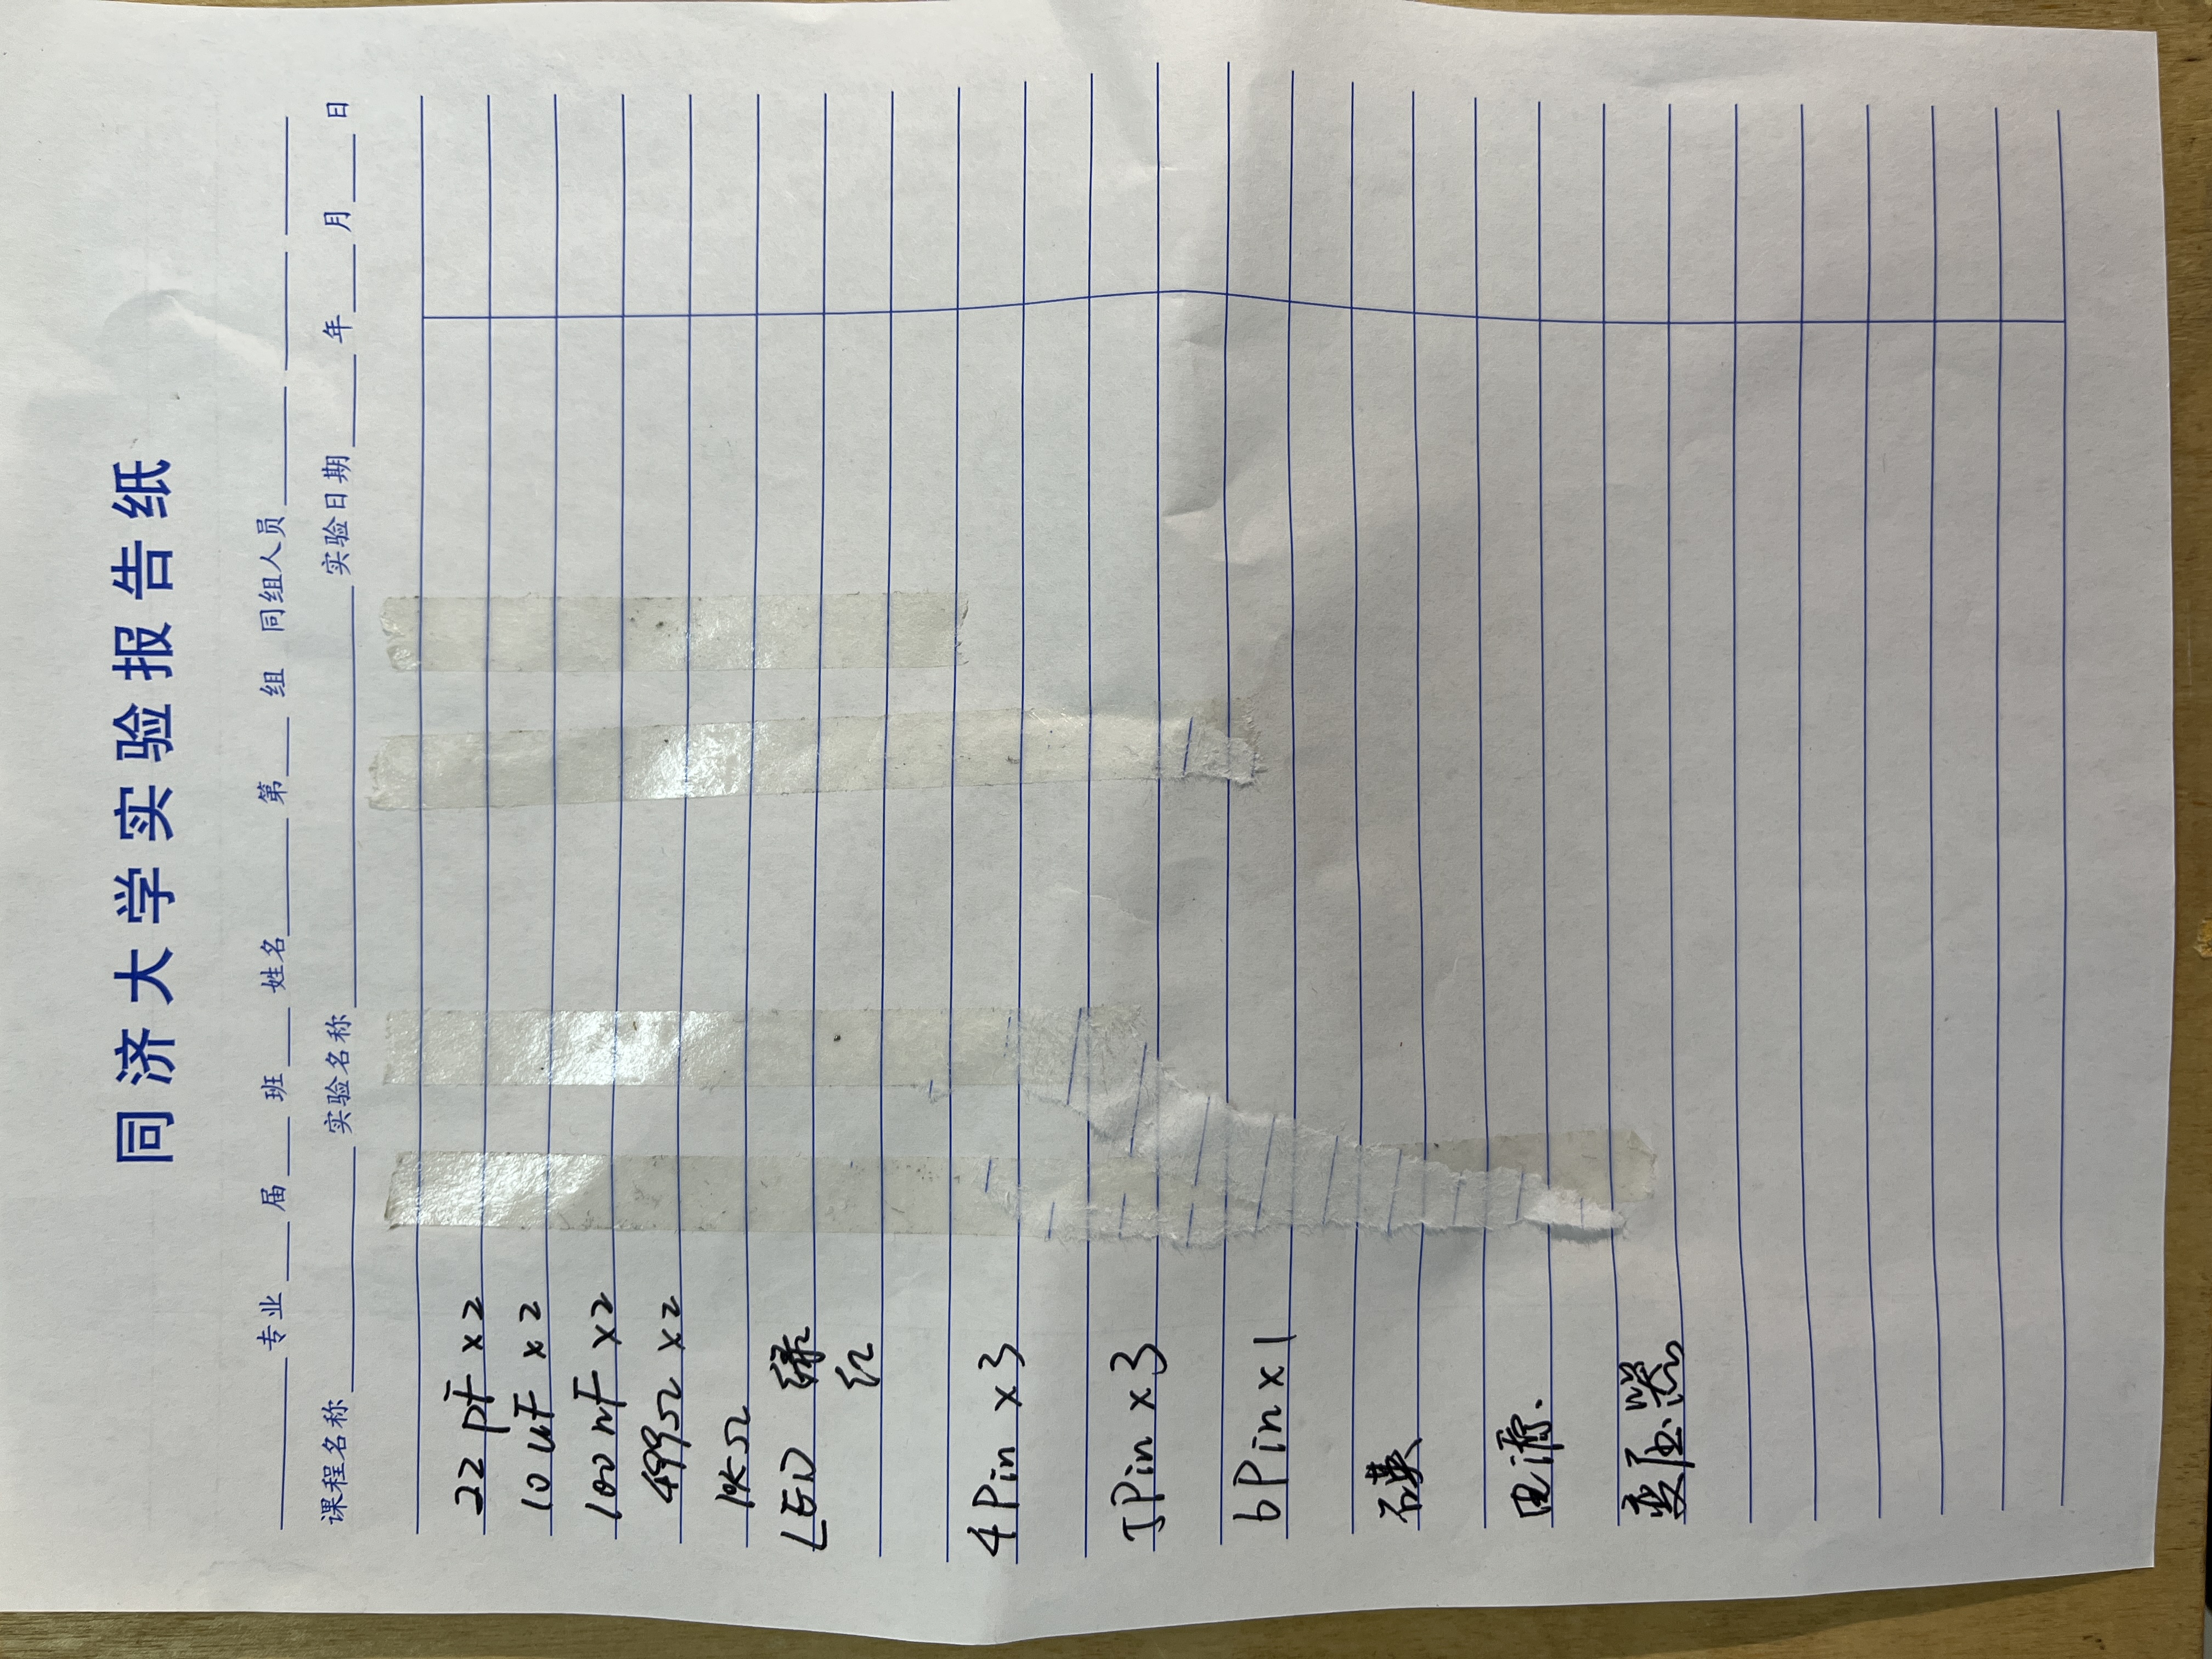 同济大学实验报告纸
专业 届 班 姓名 第 组 同组人员
课程名称 实验名称 实验日期 年 月 日
22 pF ×2
10 uF ×2
100 nF ×2
499Ω ×2
1KΩ
LED 绿
红
4Pin ×3
5Pin ×3
6Pin ×1
石英
电源.
变压器